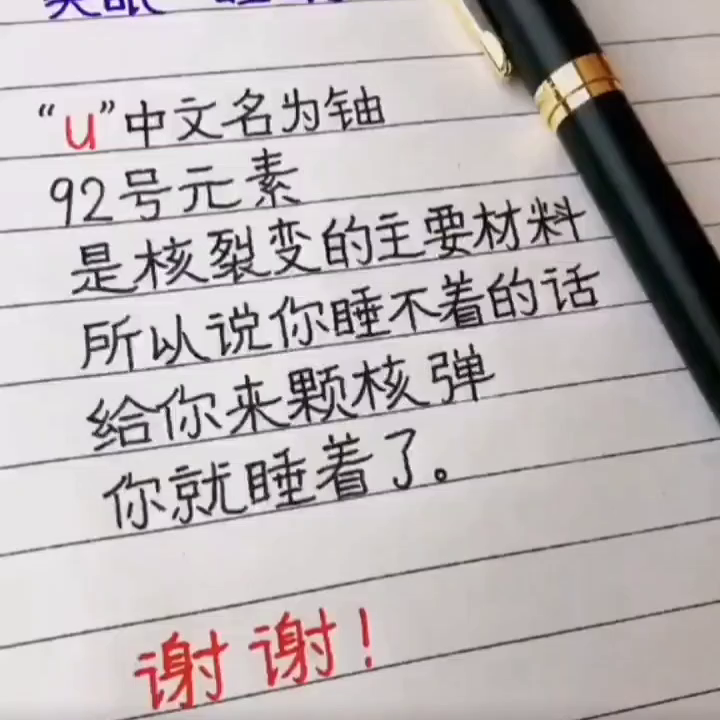 “u”中文名为铀
92号元素
是核裂变的主要材料
所以说你睡不着的话
给你来颗核弹
你就睡着了。
谢谢！